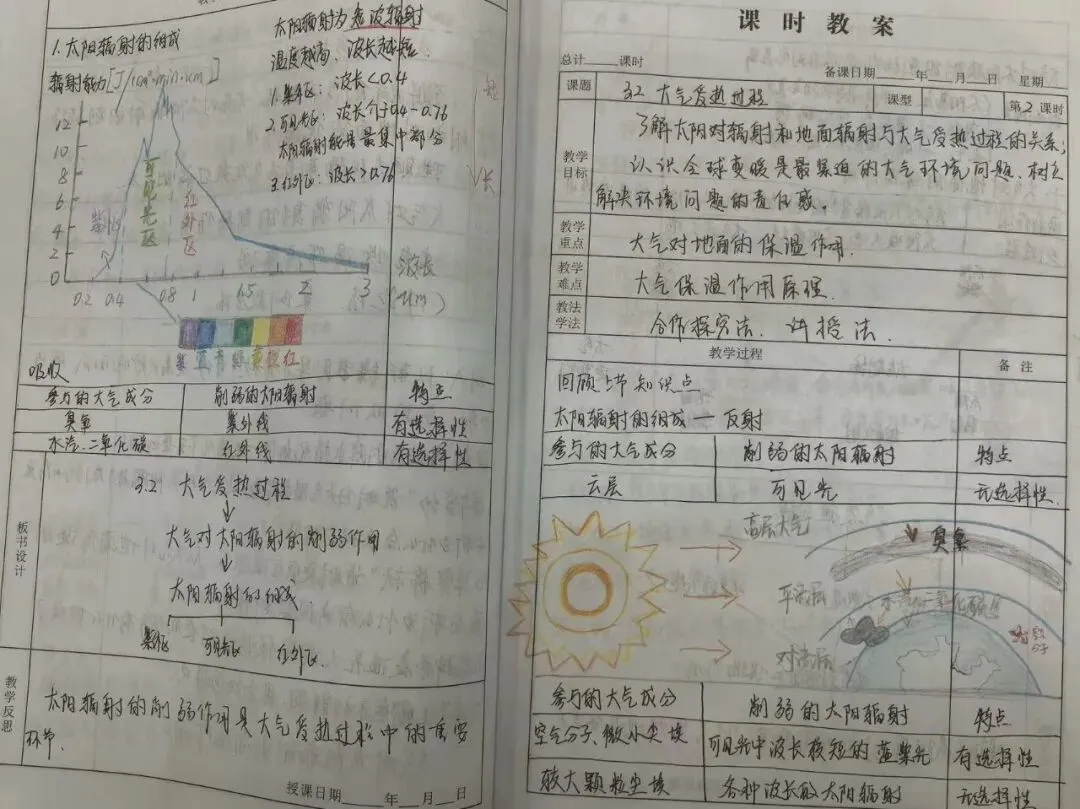 1.太阳辐射的组成
太阳辐射为短波辐射
温度越高、波长越短.
辐射能力[J/(cm²·min·μm)]
1.紫外区：波长<0.4
2.可见光区：波长介于0.4-0.76
太阳辐射能量最集中部分
3.红外区：波长>0.76
12
10
8
6
4
2
0
紫外区
可见光区
红外区
0.2 0.4 0.8 1 1.5 2 3
波长
(μm)
紫 蓝 青 绿 黄 橙 红
吸收
参与的大气成分 削弱的太阳辐射 特点
臭氧 紫外线 有选择性
水汽.二氧化碳 红外线 有选择性
板书设计
3.2 大气受热过程
↓
大气对太阳辐射的削弱作用
↓
太阳辐射的组成
紫外区 可见光区 红外区.
教学反思
太阳辐射的削弱作用是大气受热过程中的重要
环节.
授课日期____年__月__日
课时教案
总计____课时
备课日期____年__月__日 星期
课题 3.2 大气受热过程 课型 第2课时
教学目标
了解太阳对辐射和地面辐射与大气受热过程的关系；
认识全球变暖是最紧迫的大气环境问题、树立
解决环境问题的责任感。
教学重点 大气对地面的保温作用.
教学难点 大气保温作用原理.
教法学法 合作探究法、讲授法.
教学过程 备注
回顾上节知识点
太阳辐射的组成 — 反射
参与的大气成分 削弱的太阳辐射 特点
云层 可见光 无选择性.
高层大气
臭氧
平流层
水汽二氧化碳
对流层
参与的大气成分 削弱的太阳辐射 特点
空气分子、微小尘埃 可见光中波长较短的蓝紫光 有选择性
较大颗粒尘埃 各种波长的太阳辐射 无选择性